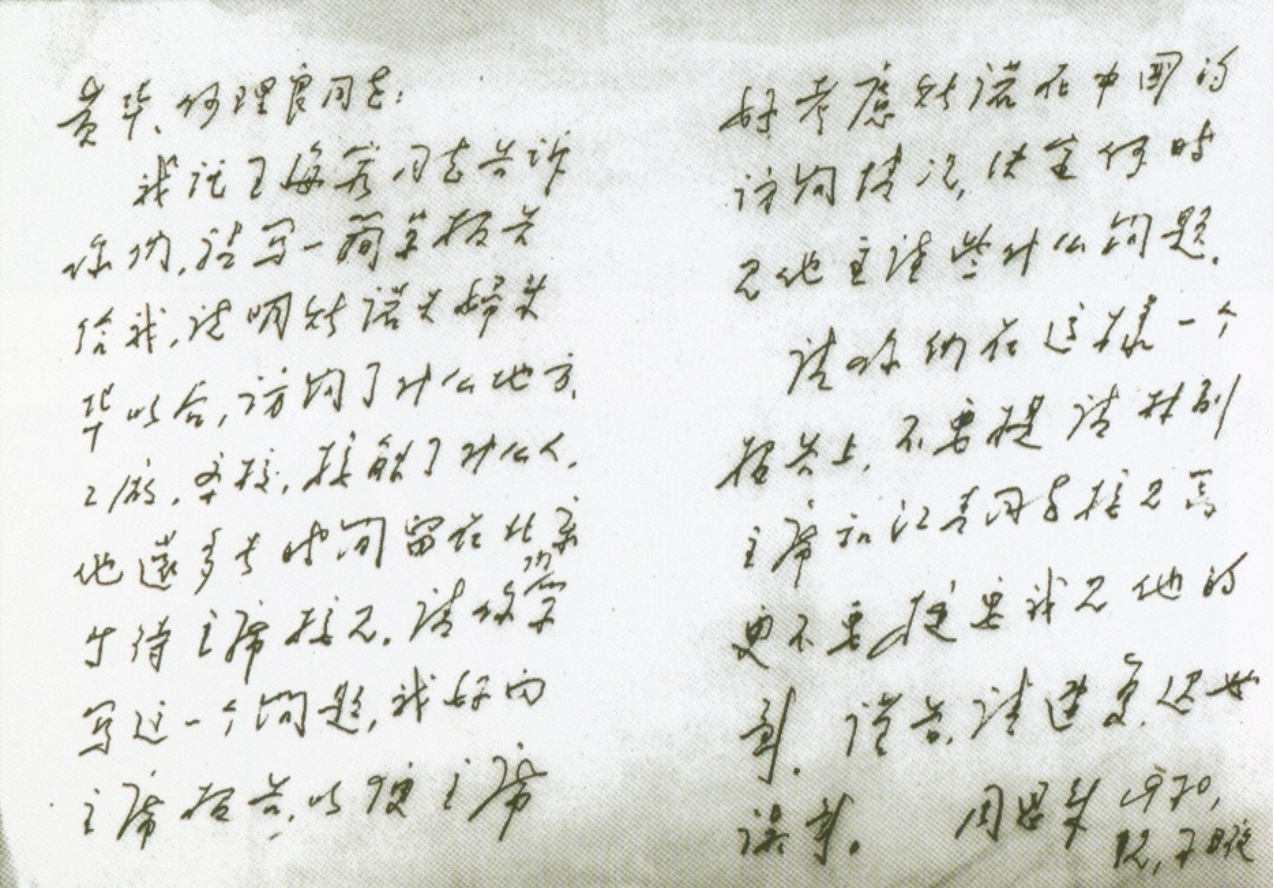 黄华、何理良同志:
我托了海容同志告诉
你们,请写一简单报告
给我,说明斯诺夫妇来
华以后,访问了什么地方、
工厂、学校,接触了什么人,
他还多长时间留在北京
等待主席接见。请你们only
写这一个问题,我好向
主席报告,以便主席
好考虑斯诺在中国的
访问情况,决定何时
见他并谈些什么问题。
请你们在这样一个
报告上,不要提请林副
主席和江青同志接见事
更不要提要我见他的
事。谨告,请速复,迟必
误事。 周恩来 1970,
12,7日夜